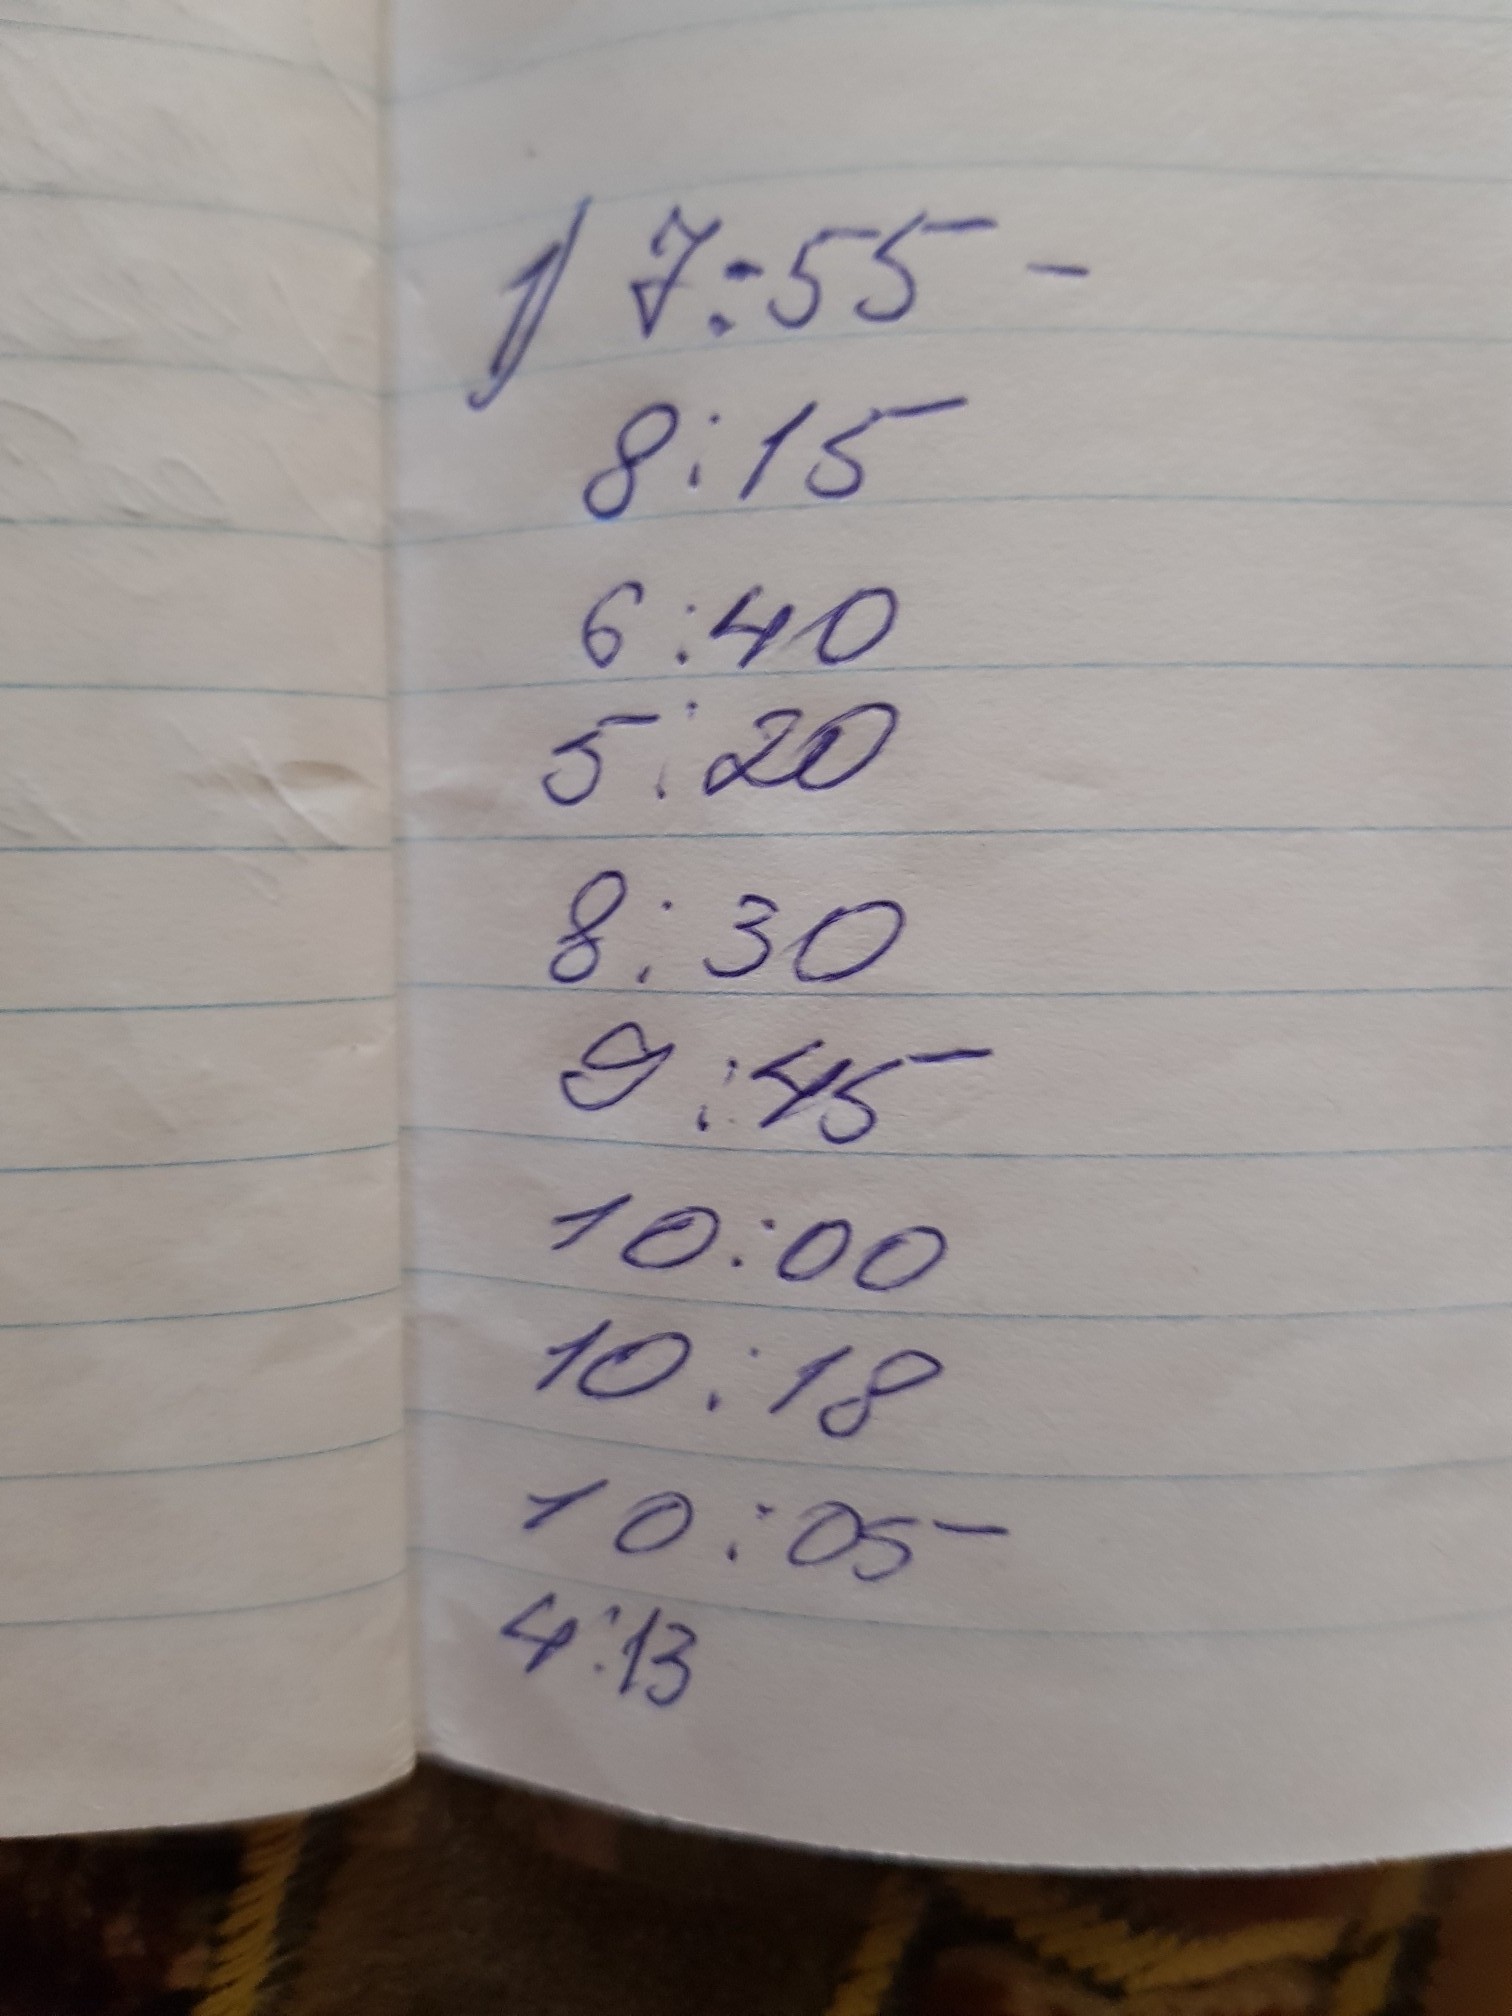 1) 7:55 -
8:15
6:40
5:20
8:30
9:45
10:00
10:18
10:05
4:13